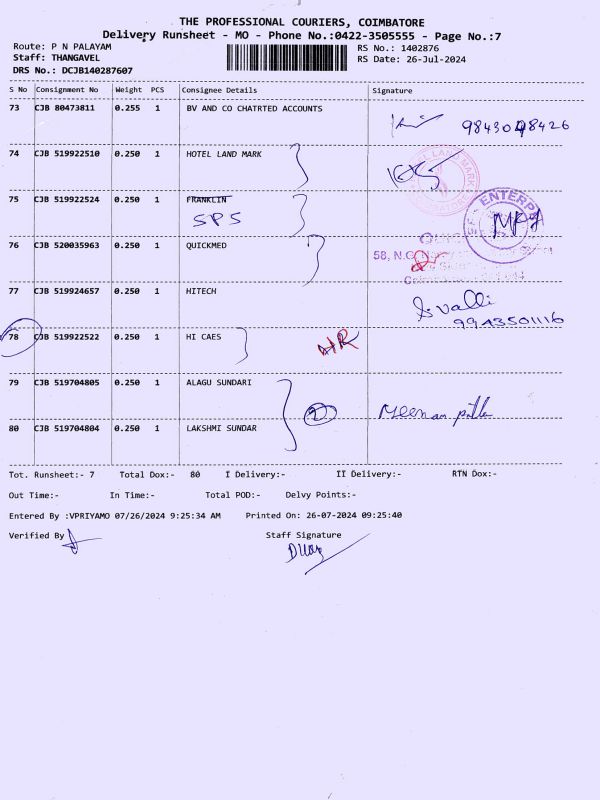 THE PROFESSIONAL COURIERS, COIMBATORE
Delivery Runsheet - MO - Phone No.:0422-3505555 - Page No.:7
Route: P N PALAYAM RS No.: 1402876
Staff: THANGAVEL RS Date: 26-Jul-2024
DRS No.: DCJB140287607
S No Consignment No Weight PCS Consignee Details Signature
73 CJB 80473811 0.255 1 BV AND CO CHATRTED ACCOUNTS
74 CJB 519922510 0.250 1 HOTEL LAND MARK
75 CJB 519922524 0.250 1 FRANKLIN
SPS
ENTERP
76 CJB 520035963 0.250 1 QUICKMED
58, N.G.
77 CJB 519924657 0.250 1 HITECH
S. valli
9943501116
78 CJB 519922522 0.250 1 HI CAES
79 CJB 519704805 0.250 1 ALAGU SUNDARI
2
80 CJB 519704804 0.250 1 LAKSHMI SUNDAR
Tot. Runsheet:- 7 Total Dox:- 80 I Delivery:- II Delivery:- RTN Dox:-
Out Time:- In Time:- Total POD:- Delvy Points:-
Entered By :VPRIYAMO 07/26/2024 9:25:34 AM Printed On: 26-07-2024 09:25:40
Verified By Staff Signature